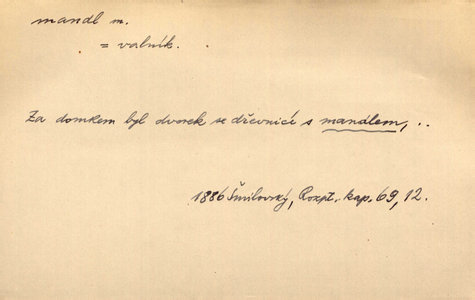 mandl m.
= valník.
Za domkem byl dvorek se dřevnicí s mandlem, ..
1886 Šmilovský, Rozpt. kap. 69, 12.